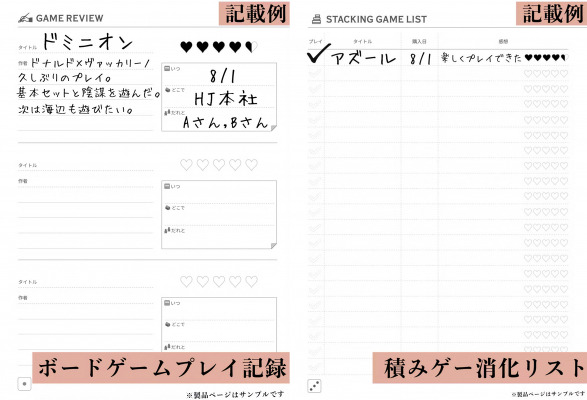 GAME REVIEW
記載例
タイトル ドミニオン
作者 ドナルド×ヴァッカリーノ
久しぶりのプレイ。
基本セットと陰謀を遊んだ。
次は海辺も遊びたい。
いつ
8/1
どこで
HJ本社
だれと
Aさん,Bさん
タイトル
作者
いつ
どこで
だれと
タイトル
作者
いつ
どこで
だれと
ボードゲームプレイ記録
※製品ページはサンプルです
STACKING GAME LIST
記載例
プレイ タイトル 購入日 感想
アズール 8/1 楽しくプレイできた
積みゲー消化リスト
※製品ページはサンプルです